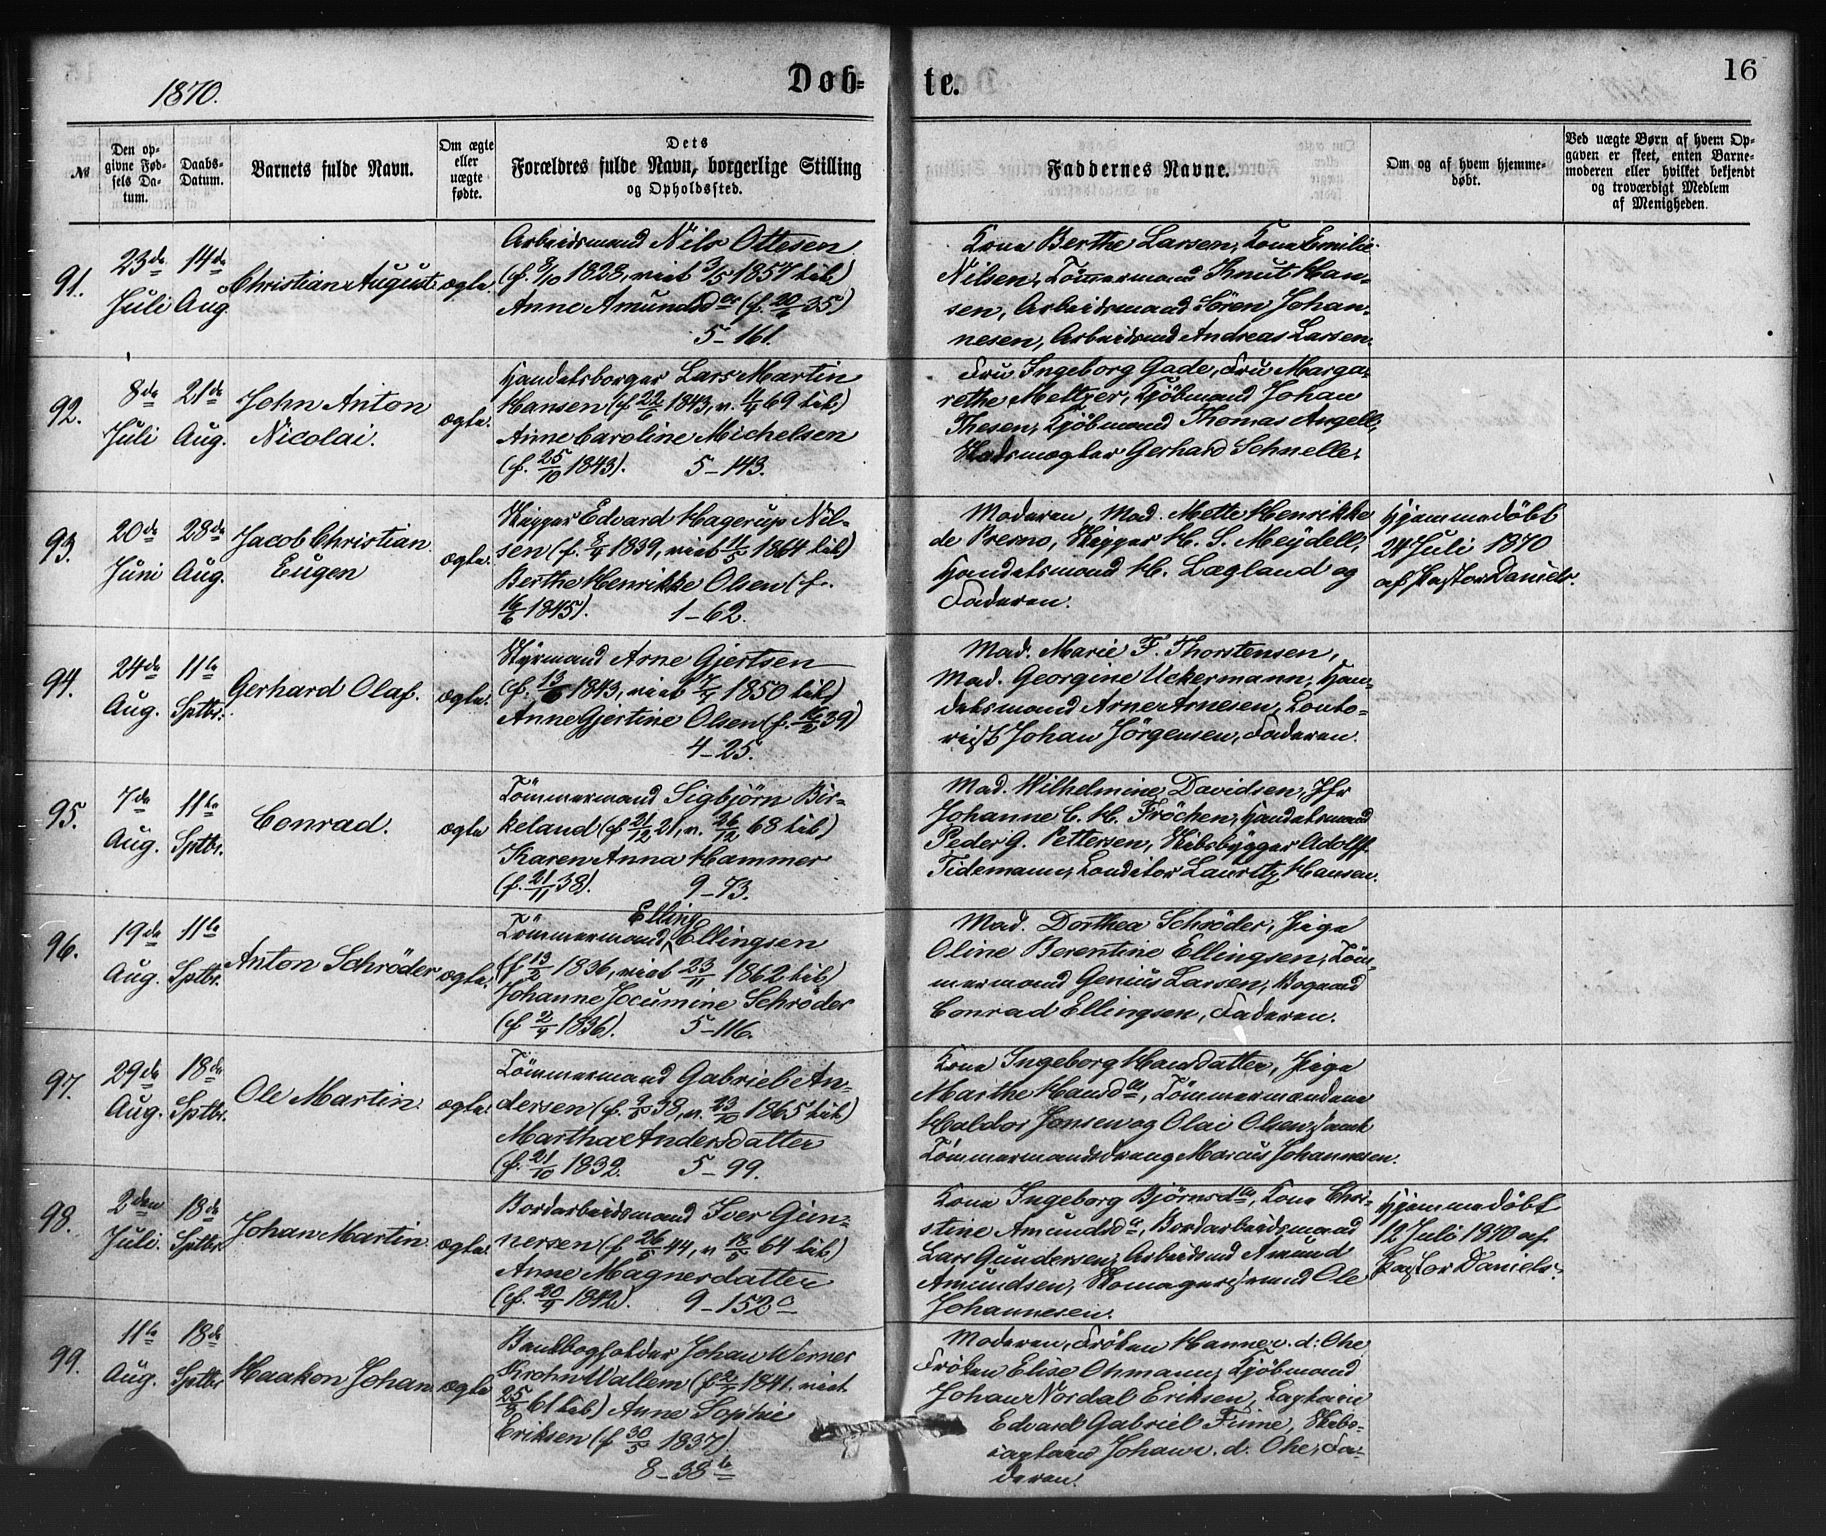 1870.
Døb-
te.
16
№
Den op-
givne Fød-
sels Da-
tum.
Daabs-
Datum.
Barnets fulde Navn.
Om ægte
eller
uægte
fødte.
Dets
Forældres fulde Navn, borgerlige Stilling
og Opholdssted.
Faddernes Navne.
Om og af hvem hjemme-
døbt.
Ved uægte Børn af hvem Op-
gaven er skeet, enten Barne-
moderen eller hvilket bekjendt
og troværdigt Medlem
af Menigheden.
91.
23de
Juli
14de
Aug.
Christian August
ægte.
Arbeidsmand Nils Ottesen
(f. 8/10 1828, viet 3/5 1857 til)
Anne Amundsd (f. 20/ 35)
5-161.
Kone Berthe Larsen, Kone Emilie
Nilsen, Tömmermand Knut Han-
sen, Arbeidsmand Sören Johan-
nesen, Arbeidsmd Andreas Larsen.
92.
8de
Juli
21de
Aug.
John Anton
Nicolai.
ægte.
Handelsborger Lars Martin
Hansen (f. 1843, v. 69 til)
Anne Caroline Michelsen
(f. 25/10 1843). 5-143.
Fru Ingeborg Gade, Fru Marga-
rethe Meltzer, Kjöbmand Johan
Thesen, Kjöbmand Thomas Angell,
Gerhard Schnelle.
93.
20de
Juni
28de
Aug.
Jacob Christian
Eugen
ægte.
Skipper Edvard Hagerup Nil-
sen (f. 1839, viet 11/5 1864 til)
Berthe Henrikke Olsen (f.
16/6 1845). 1-62.
Moderen, Mad. Mette Henrikke
de Presno, Skipper H. S. Meydell,
Handelsmand H. Lægland og
Faderen.
Hjemmedöbt
24 Juli 1870
af Pastor Daniels.
94.
24de
Aug.
11te
Sptbr.
Gerhard Olaf.
ægte.
Styrmand Arne Gjertsen
(f. 13/ 1843, viet 1850 til)
Anne Gjertine Olsen (f. 39)
4-25.
Mad. Marie F. Thorstensen,
Mad. Georgine Uckermann, Han-
delsmand Arne Arnesen, Conto-
rist Johan Jörgensen, Faderen.
95.
7de
Aug.
11te
Sptbr.
Conrad.
ægte
Tömmermand Sigbjörn Bir-
keland (f 21/12 21, v. 26/12 68 til)
Karen Anna Hammer
(f. 21/11 38). 9-73.
Mad. Wilhelmine Davidsen, Jfr
Johanne C. H. Fröchen, Handelsmand
Peder G. Pettersen, Skibsbygger Adolf
Tidemann, Conditor Lauritz Hansen.
96.
19de
Aug.
11te
Sptbr.
Anton Schröder
ægte.
Elling
Tömmermand Ellingsen
(f. 13/2 1836, viet 23/11 1862 til)
Johanne Jocumine Schröder
(f. 2/9 1836). 5-116.
Mad. Dorthea Schröder, Pige
Oline Berentine Ellingsen, Töm-
mermand Genius Larsen,
Conrad Ellingsen, Faderen.
97.
29de
Aug.
18de
Sptbr.
Ole Martin.
ægte.
Tömmermand Gabriel An-
dersen (f. 9/10 38, v. 23/10 1865 til)
Martha Andersdatter
(f. 21/10 1832. 5-99.
Kone Ingeborg Hansdatter, Pige
Marthe Hansd, Tömmermændene
Haldor Jonsen og Olai Olsen, samt
Tömmermandsdreng Marcus Johannesen.
98.
2den
Juli.
18de
Sptbr
Johan Martin
ægte.
Bordarbeidsmand Iver Gun-
nersen (f 26/5 44, v 18/5 64 til)
Anne Magnesdatter
(f. 20/9 1842). 9-152 c
Kone Ingeborg Björnsd, Kone Chri-
stine Amundsd, Bordarbeidsmand
Lars Gundersen, Arbeidsmd Amund
Amundsen, Skomagersvend Ole
Johannesen.
Hjemmedöbt
12 Juli 1870 af
Pastor Daniels.
99.
11te
Aug.
18de
Sptbr
Haakon Johan
ægte
Bankbogholder Johan Werner
Krohn Wallem (f 2/ 1841. viet
61 til) Anne Sophie
Eriksen (f 30/5 1837).
8-38
Moderen, Fröken Hanne v. d. Ohe
Fröken Elise Ohmann, Kjöbmand
Johan Nordal Eriksen, Captain
Edvard Gabriel Finne, Skibs-
captain Johan v. d. Ohe, Fa-
deren.